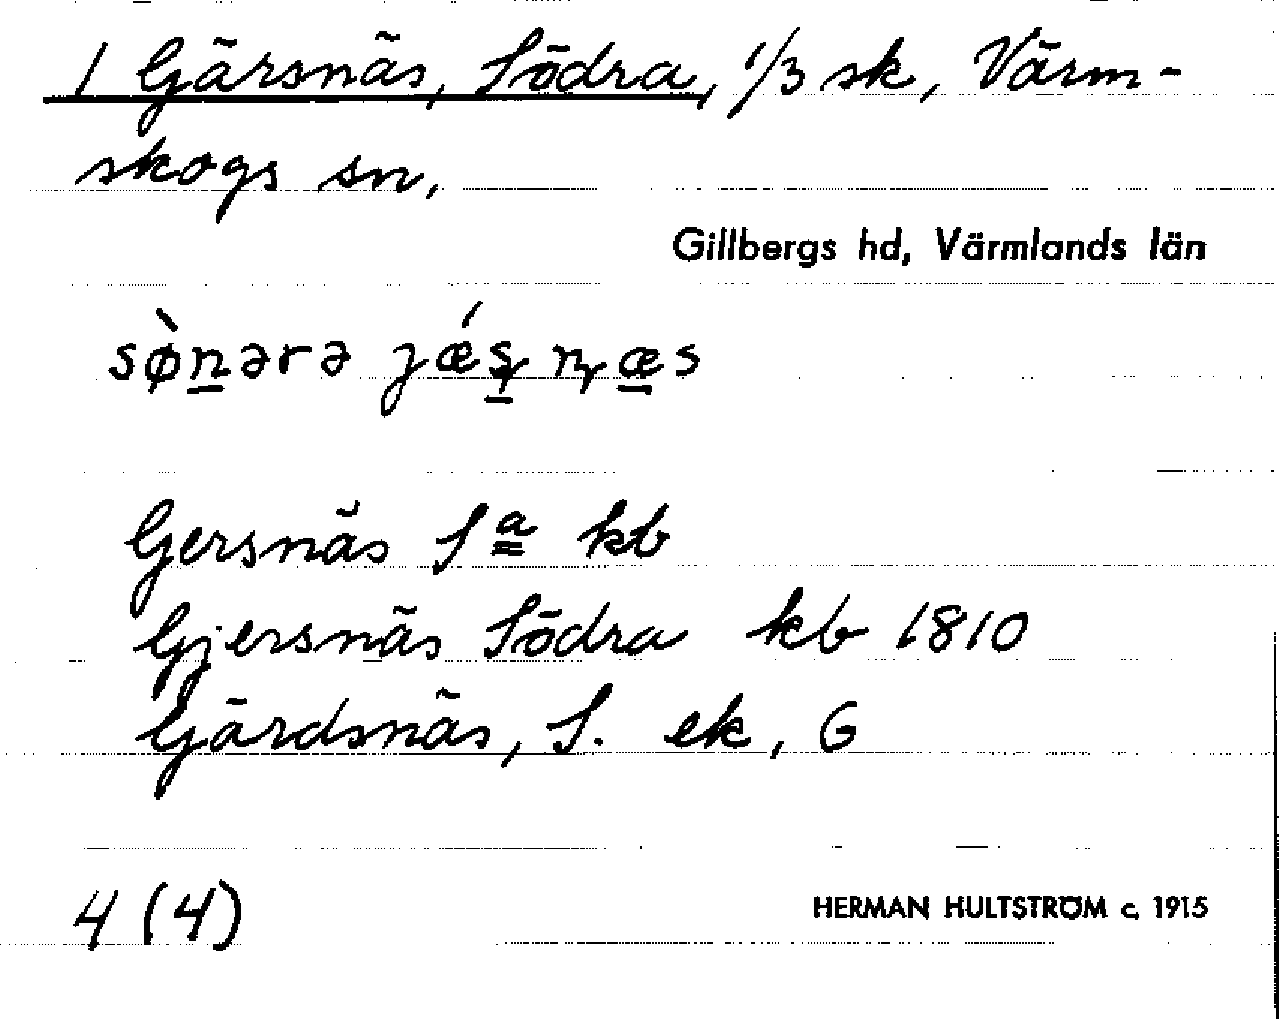 1 Gärsnäs, Södra, 1/3 sk, Värm-
skogs sn,
Gillbergs hd, Värmlands län
sø̀n̲ərə jǽʂ̲ɳæ̲s
Gersnäs Sa kb
Gjersnäs Södra kb 1810
Gärdsnäs, S. ek, G
4 (4)
HERMAN HULTSTRÖM c. 1915